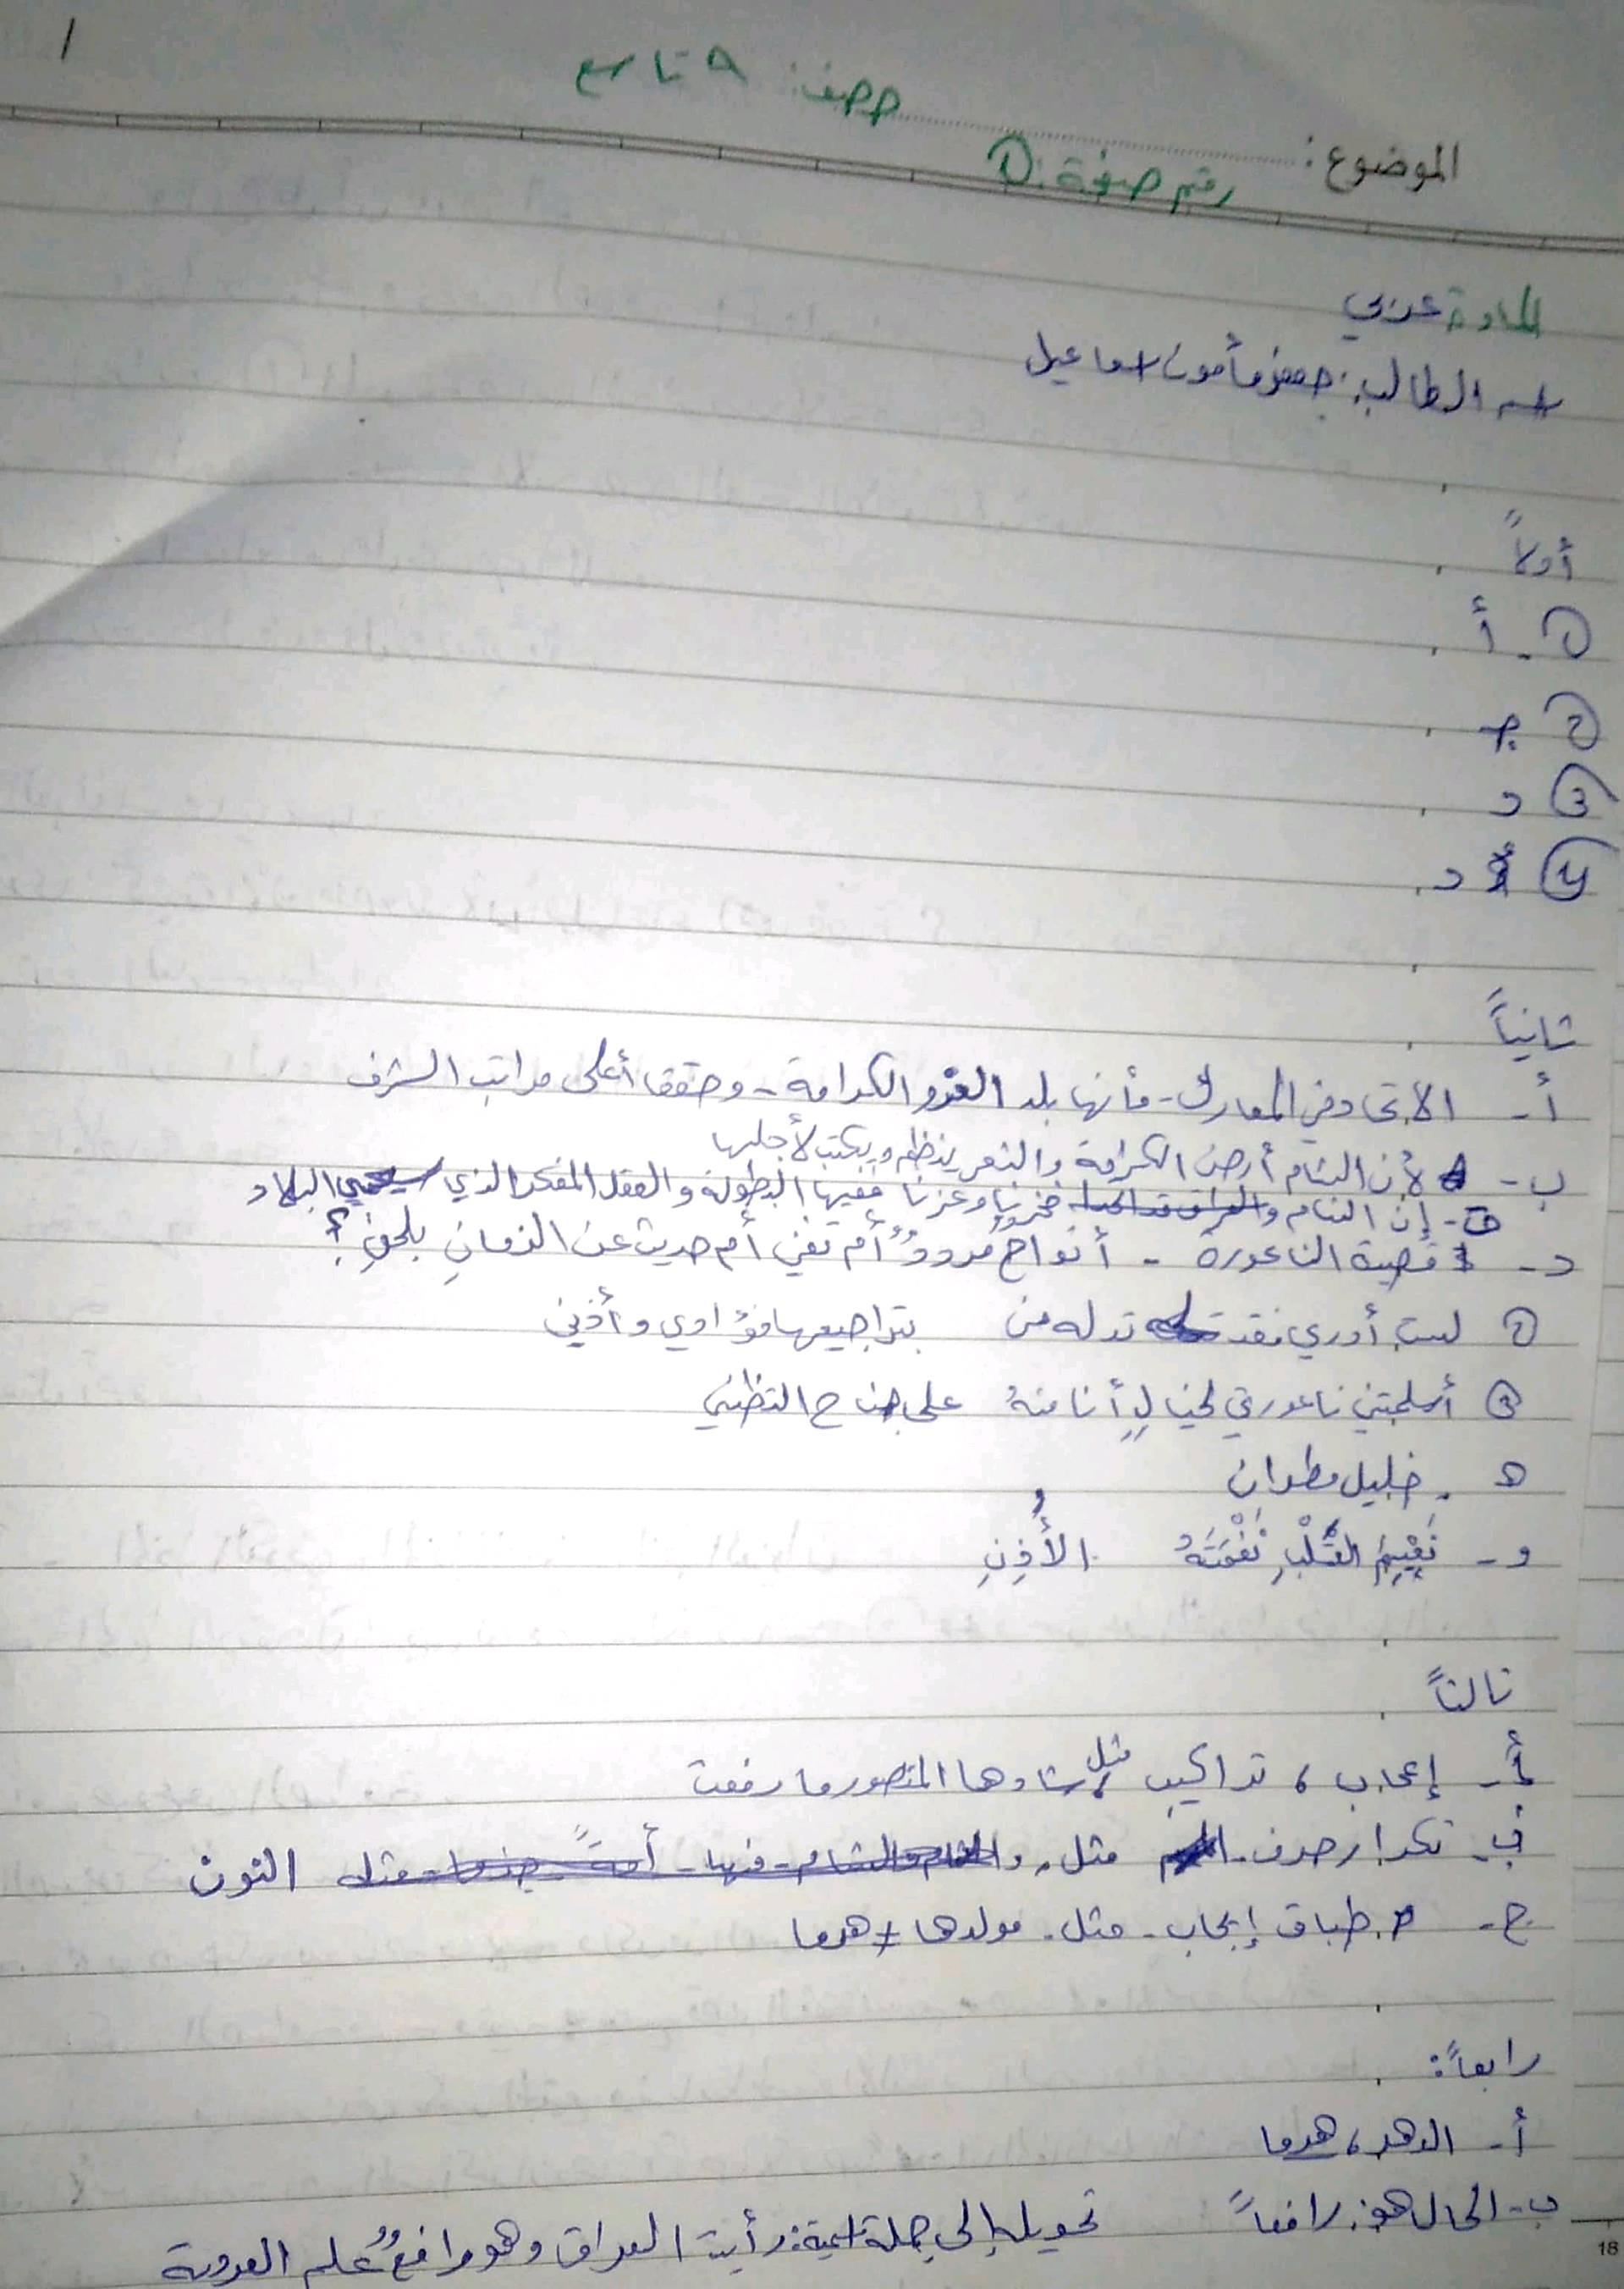 ١
صف: ٩ تاسع
الموضوع:
رقم صفحة: ①
المادة عربي
اسم الطالب: جعفر مأمون اسماعيل
أولاً
① - أ
② ج
③ د
④ د
ثانياً
أ - الاتحاد في المعارك - فأنها بلد العز والكرامة - وحققا أعلى مراتب الشرف
ب - لأن الشام أرض الكرامة والشعر ينظم ويكتب لأجلها
ج - إن الشام فخرنا وعزنا ففيها البطولة والعقل المفكر الذي سيحمي البلاد
د - قصيدة الناعورة - أنواحٌ مرددٌ أم تغني أم حديث عن الزمانِ بلحنِ؟
② لست أدري فقد تدله من بتراجيعها فؤادي وأذني
③ أسلمتني ناعورتي لخيالٍ أنا منهُ على جناح التظني
هـ - خليل مطران
و - القَلْبِ نَغْمَتَهُ الأُذُنِ
ثالثاً
أ - إعجاب، تراكيب مثل، شادها المنصور ما رفعت
ب - تكرار حرف - مثل، النون
ج - طباق إيجاب - مثل - مولدها ≠ هرما
رابعاً:
أ - الدهر، هرما
ب - الحال هو: رافعاً تحويله إلى جملة اسمية: رأيت العراق وهو رافعٌ علم العروبة
18